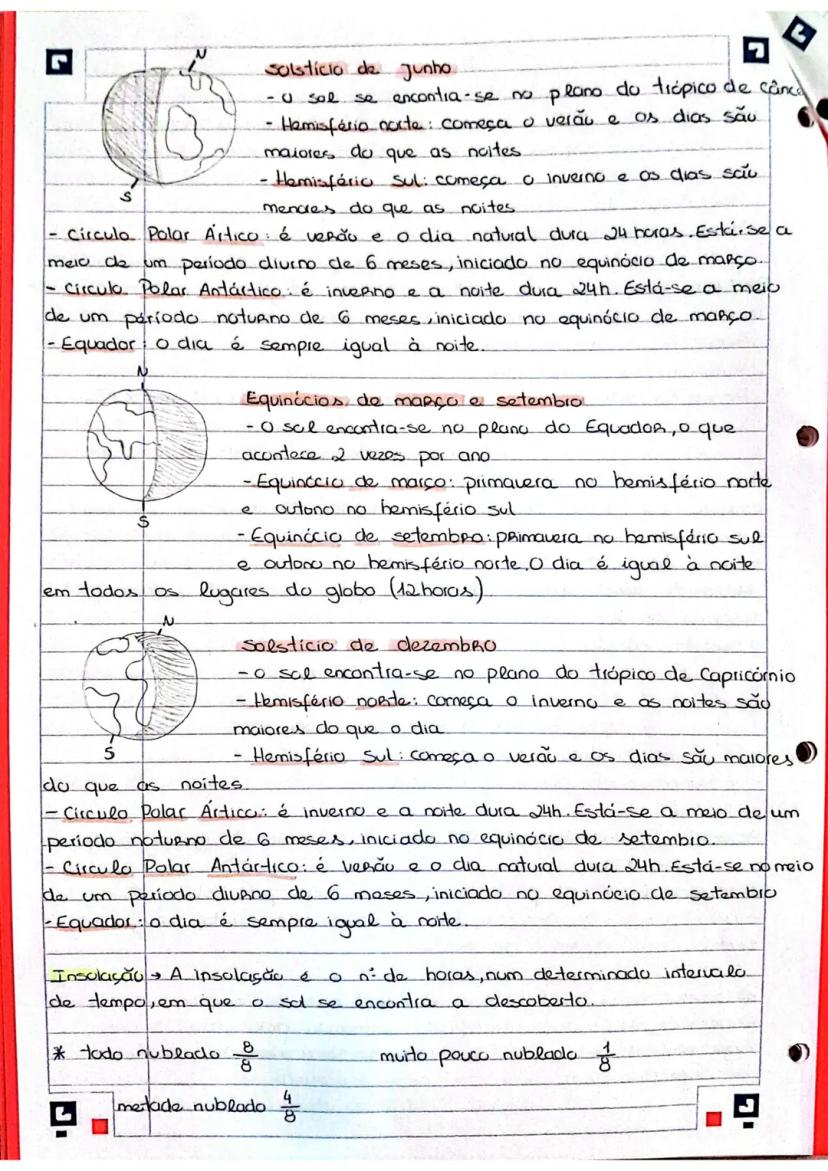 N
Solstício de Junho
- O sol se encontra-se no plano do trópico de cânce
- Hemisfério norte: começa o verão e os dias são
maiores do que as noites
- Hemisfério Sul: começa o inverno e os dias são
menores do que as noites
S
- Circulo Polar Ártico: é verão e o dia natural dura 24 horas. Está-se a
meio de um período diurno de 6 meses, iniciado no equinócio de março.
- Circulo Polar Antártico: é inverno e a noite dura 24h. Está-se a meio
de um período noturno de 6 meses, iniciado no equinócio de março.
- Equador: o dia é sempre igual à noite.
N
Equinócios de março e setembro
- O sol encontra-se no plano do Equador, o que
acontece 2 vezes por ano
- Equinócio de março: primavera no hemisfério norte
e outono no hemisfério sul
S
- Equinócio de setembro: primavera no hemisfério sul
e outono no hemisfério norte. O dia é igual à noite
em todos os lugares do globo (12 horas).
N
Solstício de dezembro
- O sol encontra-se no plano do trópico de Capricórnio
- Hemisfério norte: começa o inverno e as noites são
maiores do que o dia
S
- Hemisfério Sul: começa o verão e os dias são maiores
do que as noites.
- Circulo Polar Ártico: é inverno e a noite dura 24h. Está-se a meio de um
período noturno de 6 meses, iniciado no equinócio de setembro.
- Circulo Polar Antártico: é verão e o dia natural dura 24h. Está-se no meio
de um período diurno de 6 meses, iniciado no equinócio de setembro
- Equador: o dia é sempre igual à noite.
Insolação → A insolação é o nº de horas, num determinado intervalo
de tempo, em que o sol se encontra a descoberto.
* todo nublado 8/8 muito pouco nublado 1/8
metade nublado 4/8